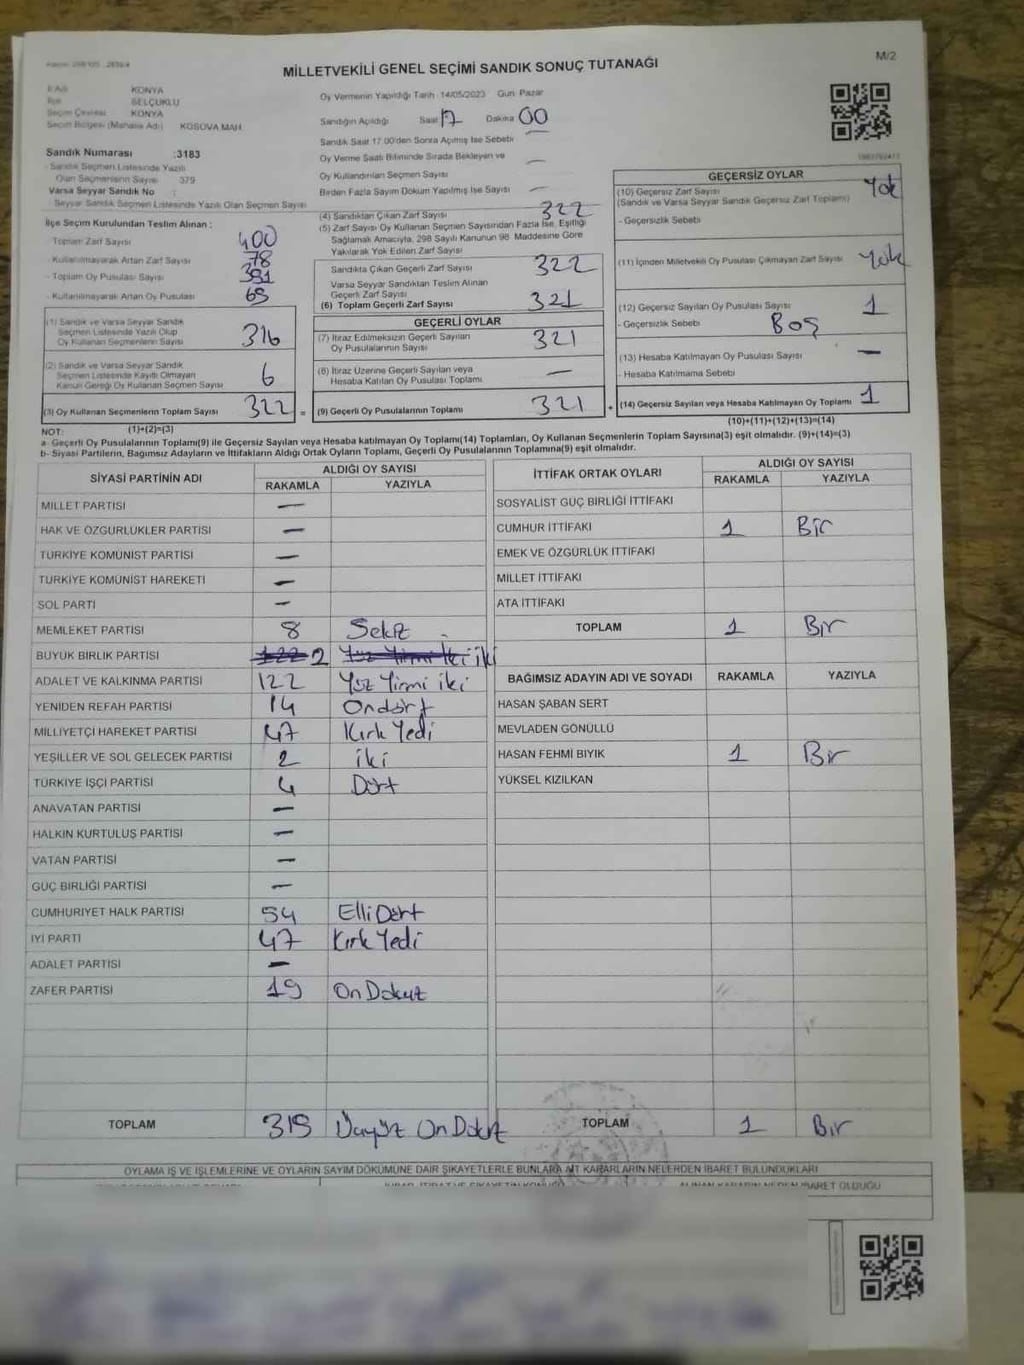 MİLLETVEKİLİ GENEL SEÇİMİ SANDIK SONUÇ TUTANAĞI
M/2
İl Adı KONYA
İlçe SELÇUKLU
Seçim Çevresi KONYA
Seçim Bölgesi (Mahalle Adı) KOSOVA MAH.
Sandık Numarası :3183
- Sandık Seçmen Listesinde Yazılı
Olan Seçmenlerin Sayısı 379
Varsa Seyyar Sandık No :
- Seyyar Sandık Seçmen Listesinde Yazılı Olan Seçmen Sayısı
Oy Vermenin Yapıldığı Tarih :14/05/2023 Gün: Pazar
Sandığın Açıldığı Saat 17 Dakika 00
Sandık Saat 17.00'den Sonra Açılmış İse Sebebi
Oy Verme Saati Bitiminde Sırada Bekleyen ve —
Oy Kullandırılan Seçmen Sayısı
Birden Fazla Sayım Döküm Yapılmış İse Sayısı —
İlçe Seçim Kurulundan Teslim Alınan :
- Toplam Zarf Sayısı 400
- Kullanılmayarak Artan Zarf Sayısı 78
- Toplam Oy Pusulası Sayısı 391
- Kullanılmayarak Artan Oy Pusulası 69
(1) Sandık ve Varsa Seyyar Sandık
Seçmen Listesinde Yazılı Olup
Oy Kullanan Seçmenlerin Sayısı 316
(2) Sandık ve Varsa Seyyar Sandık
Seçmen Listesinde Kayıtlı Olmayan
Kanun Gereği Oy Kullanan Seçmen Sayısı 6
(3) Oy Kullanan Seçmenlerin Toplam Sayısı 322 =
(1)+(2)=(3)
(4) Sandıktan Çıkan Zarf Sayısı 322
(5) Zarf Sayısı Oy Kullanan Seçmen Sayısından Fazla İse, Eşitliği
Sağlamak Amacıyla, 298 Sayılı Kanunun 98. Maddesine Göre
Yakılarak Yok Edilen Zarf Sayısı
Sandıkta Çıkan Geçerli Zarf Sayısı 322
Varsa Seyyar Sandıktan Teslim Alınan
Geçerli Zarf Sayısı
(6) Toplam Geçerli Zarf Sayısı 321
GEÇERLİ OYLAR
(7) İtiraz Edilmeksizin Geçerli Sayılan
Oy Pusulalarının Sayısı 321
(8) İtiraz Üzerine Geçerli Sayılan veya
Hesaba Katılan Oy Pusulası Toplamı —
(9) Geçerli Oy Pusulalarının Toplamı 321 +
GEÇERSİZ OYLAR
(10) Geçersiz Zarf Sayısı Yok
(Sandık ve Varsa Seyyar Sandık Geçersiz Zarf Toplamı)
- Geçersizlik Sebebi
(11) İçinden Milletvekili Oy Pusulası Çıkmayan Zarf Sayısı Yok
(12) Geçersiz Sayılan Oy Pusulası Sayısı 1
- Geçersizlik Sebebi Boş
(13) Hesaba Katılmayan Oy Pusulası Sayısı —
- Hesaba Katılmama Sebebi
(14) Geçersiz Sayılan veya Hesaba Katılmayan Oy Toplamı 1
(10)+(11)+(12)+(13)=(14)
NOT:
a- Geçerli Oy Pusulalarının Toplamı(9) ile Geçersiz Sayılan veya Hesaba katılmayan Oy Toplamı(14) Toplamları, Oy Kullanan Seçmenlerin Toplam Sayısına(3) eşit olmalıdır. (9)+(14)=(3)
b- Siyasi Partilerin, Bağımsız Adayların ve İttifakların Aldığı Ortak Oyların Toplamı, Geçerli Oy Pusulalarının Toplamına(9) eşit olmalıdır.
SİYASİ PARTİNİN ADI ALDIĞI OY SAYISI
RAKAMLA YAZIYLA
MİLLET PARTİSİ —
HAK VE ÖZGÜRLÜKLER PARTİSİ —
TÜRKİYE KOMÜNİST PARTİSİ —
TÜRKİYE KOMÜNİST HAREKETİ —
SOL PARTİ —
MEMLEKET PARTİSİ 8 Sekiz
BÜYÜK BİRLİK PARTİSİ 122 2 Yüz Yirmi iki iki
ADALET VE KALKINMA PARTİSİ 122 Yüz Yirmi iki
YENİDEN REFAH PARTİSİ 14 Ondört
MİLLİYETÇİ HAREKET PARTİSİ 47 Kırk Yedi
YEŞİLLER VE SOL GELECEK PARTİSİ 2 iki
TÜRKİYE İŞÇİ PARTİSİ 4 Dört
ANAVATAN PARTİSİ —
HALKIN KURTULUŞ PARTİSİ —
VATAN PARTİSİ —
GÜÇ BİRLİĞİ PARTİSİ —
CUMHURİYET HALK PARTİSİ 54 Elli Dört
İYİ PARTİ 47 Kırk Yedi
ADALET PARTİSİ —
ZAFER PARTİSİ 19 On Dokuz
TOPLAM 319 Üçyüz On Dokuz
İTTİFAK ORTAK OYLARI ALDIĞI OY SAYISI
RAKAMLA YAZIYLA
SOSYALİST GÜÇ BİRLİĞİ İTTİFAKI
CUMHUR İTTİFAKI 1 Bir
EMEK VE ÖZGÜRLÜK İTTİFAKI
MİLLET İTTİFAKI
ATA İTTİFAKI
TOPLAM 1 Bir
BAĞIMSIZ ADAYIN ADI VE SOYADI RAKAMLA YAZIYLA
HASAN ŞABAN SERT
MEVLADEN GÖNÜLLÜ
HASAN FEHMİ BIYIK 1 Bir
YÜKSEL KIZILKAN
TOPLAM 1 Bir
OYLAMA İŞ VE İŞLEMLERİNE VE OYLARIN SAYIM DÖKÜMÜNE DAİR ŞİKAYETLERLE BUNLARA AİT KARARLARIN NELERDEN İBARET BULUNDUKLARI